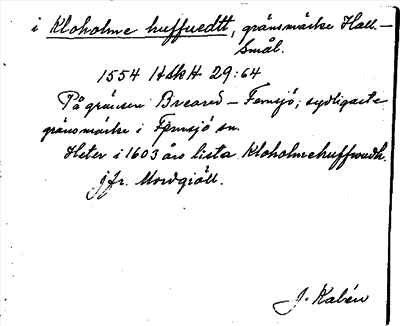 i Kloholme huffuedtt, gränsmärke Hall.-
Smål.
1554 HSKH 29:64
På gränsen Breared – Femsjö; sydligaste
gränsmärke i Femsjö sn.
Heter i 1603 års lista Kloholmehuffwudh.
Jfr. Mordgiöll.
J. Kalén